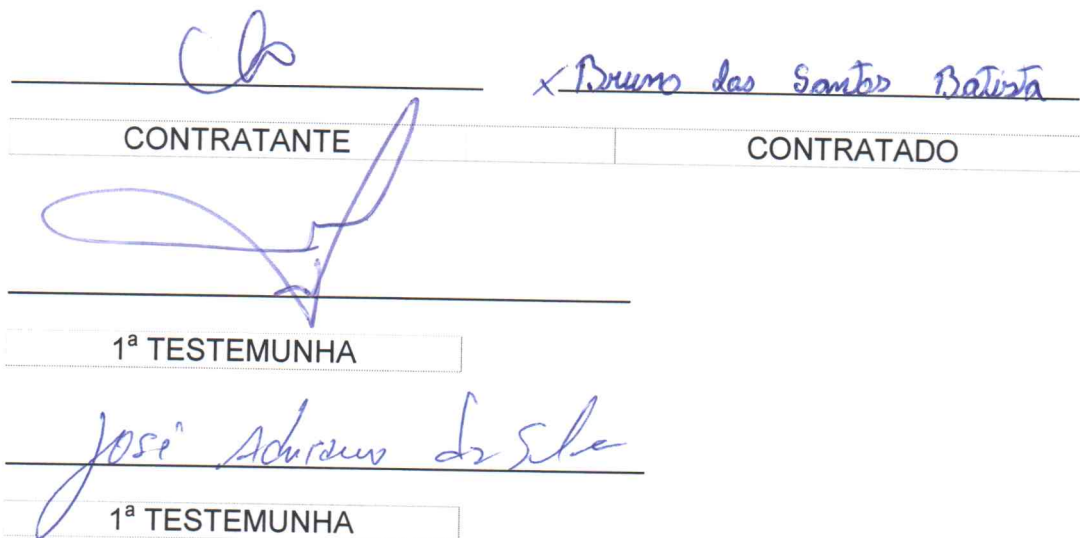 x Bruno dos Santos Batista
CONTRATANTE CONTRATADO
1ª TESTEMUNHA
José Adriano da Silva
1ª TESTEMUNHA